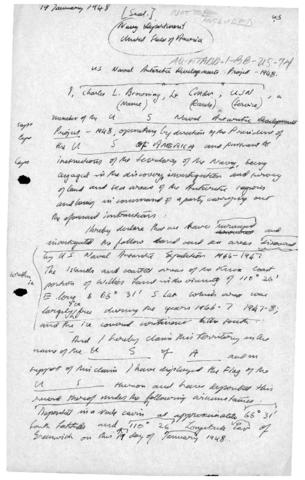 19 January 1948
[Seal.]
NOT TO BE
U3
Navy Department
United States of America
AU-ATADD-1-BB-US-74
US Naval Antarctic Developments Project - 1948.
I, Charles L. Browning, Lt Comdr, USN, a
(Name) (Rank) (Service)
Caps member of the U S Naval Antarctic Developments
Caps Project - 1948, operating by direction of the President of
the U S OF AMERICA and pursuant to
instructions of the Secretary of the Navy, being
engaged in the discovery, investigation and survey
of land and sea areas of the Antarctic regions
and being in command of a party carrying out
the aforesaid instructions:
I hereby declare that we have surveyed and
investigated the following land and sea areas discovered
by U S Naval Antarctic Expedition 1946-1947
The islands and coastal areas of the Knox Coast
portion of Wilkes Land in the vicinity of 110° 26'
E long & 66° 31' S Lat which area was
largely ice free during the years 1946-7 & 1947-8;
and the ice covered continent to the south
And I hereby claim this territory in the
name of the U S of A and in
support of this claim I have displayed the Flag of the
U S thereon and have deposited this
record thereof under the following circumstances
Deposited in a rock cairn at approximately 66° 31'
South Latitude and 110° 26' Longitude East of
Greenwich on this 19 day of January 1948